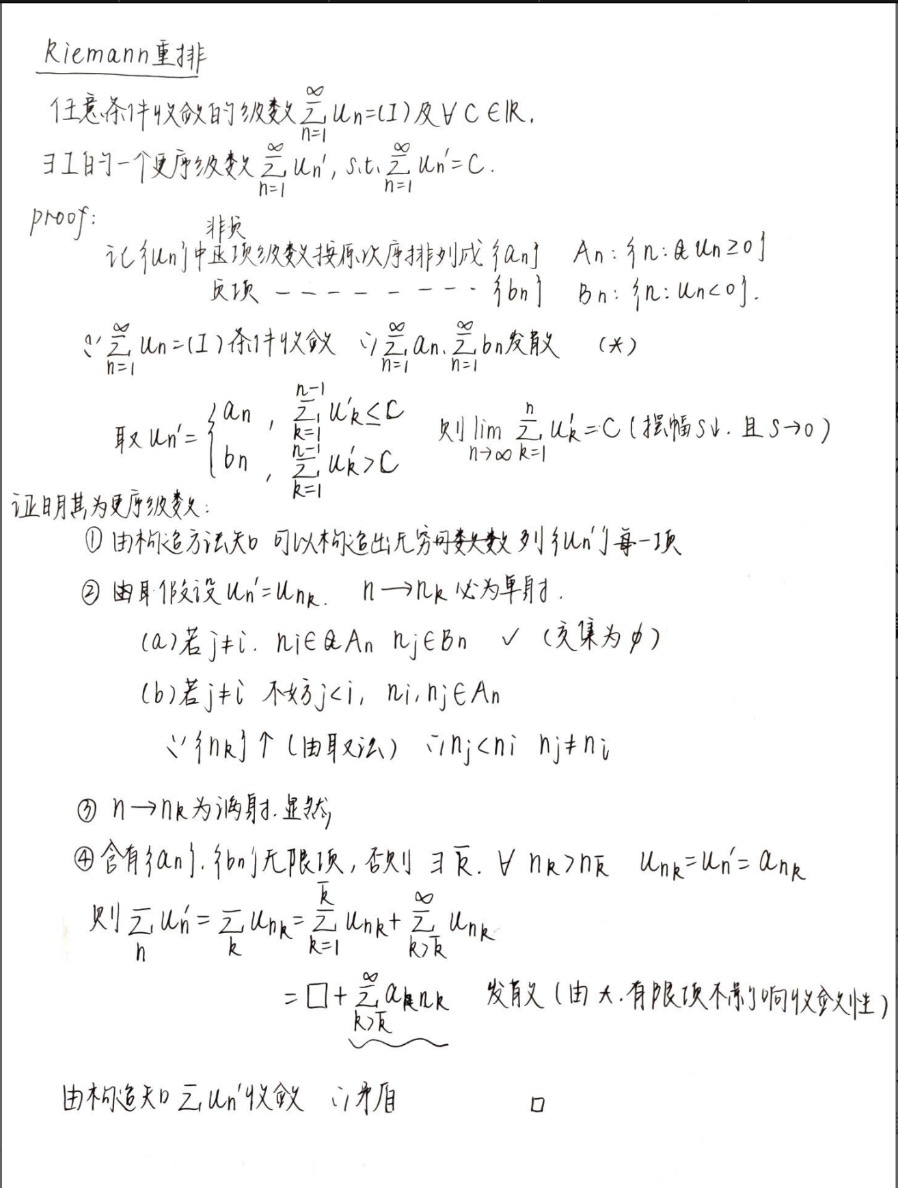 Riemann重排
任意条件收敛的级数 ∑_{n=1}^{∞} un=(I)及∀C∈ℝ,
∃I的一个更序级数 ∑_{n=1}^{∞} un', s.t. ∑_{n=1}^{∞} un'=C.
proof:
非负
记{un}中正项级数按原次序排列成{an} An:{n: un≥0}
负项 - - - - - - - - {bn} Bn:{n:un<0}.
∵ ∑_{n=1}^{∞} un=(I)条件收敛 ∴ ∑_{n=1}^{∞} an. ∑_{n=1}^{∞} bn发散 (*)
取un'= { an , ∑_{k=1}^{n-1} u'k≤C
bn , ∑_{k=1}^{n-1} u'k>C
则 lim_{n→∞} ∑_{k=1}^{n} u'k=C(摆幅S↓. 且S→0)
证明其为更序级数:
① 由构造方法知 可以构造出无穷数列{un'}每一项
② 假设un'=unk. n→nk必为单射.
(a)若j≠i. ni∈An nj∈Bn ✓ (交集为φ)
(b)若j≠i 不妨j<i, ni,nj∈An
∵{nk}↑(由取法) ∴nj<ni nj≠ni
③ n→nk为满射.显然
④ 含有{an}.{bn}无限项,否则 ∃k̄. ∀ nk>nk̄ unk=un'=ank
则 ∑_{n} un'= ∑_{k} unk= ∑_{k=1}^{k̄} unk+ ∑_{k>k̄}^{∞} unk
=□+ ∑_{k>k̄}^{∞} ank 发散(由*.有限项不影响收敛性)
由构造知∑un'收敛 ∴矛盾 □